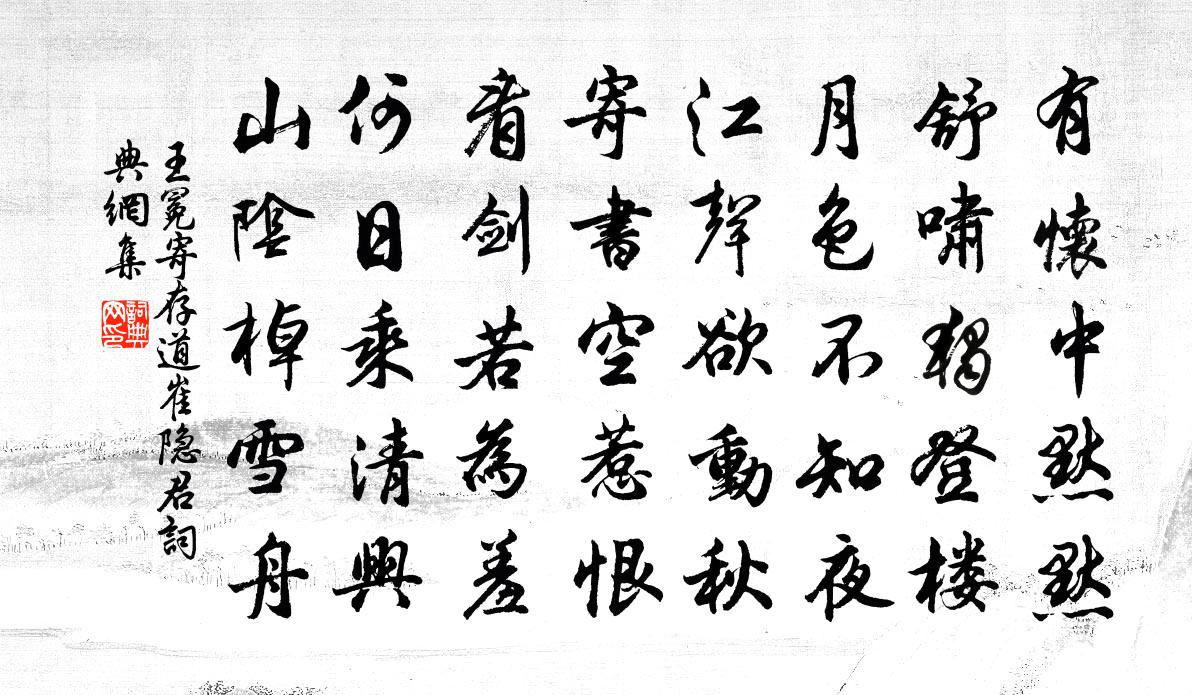 有懷中默默
舒嘯獨登楼
月色不知夜
江聲欲動秋
寄書空惹恨
看劍若為羞
何日乘清興
山陰棹雪舟
王冕寄存道崔隐君詞
典網集
詞典
网印